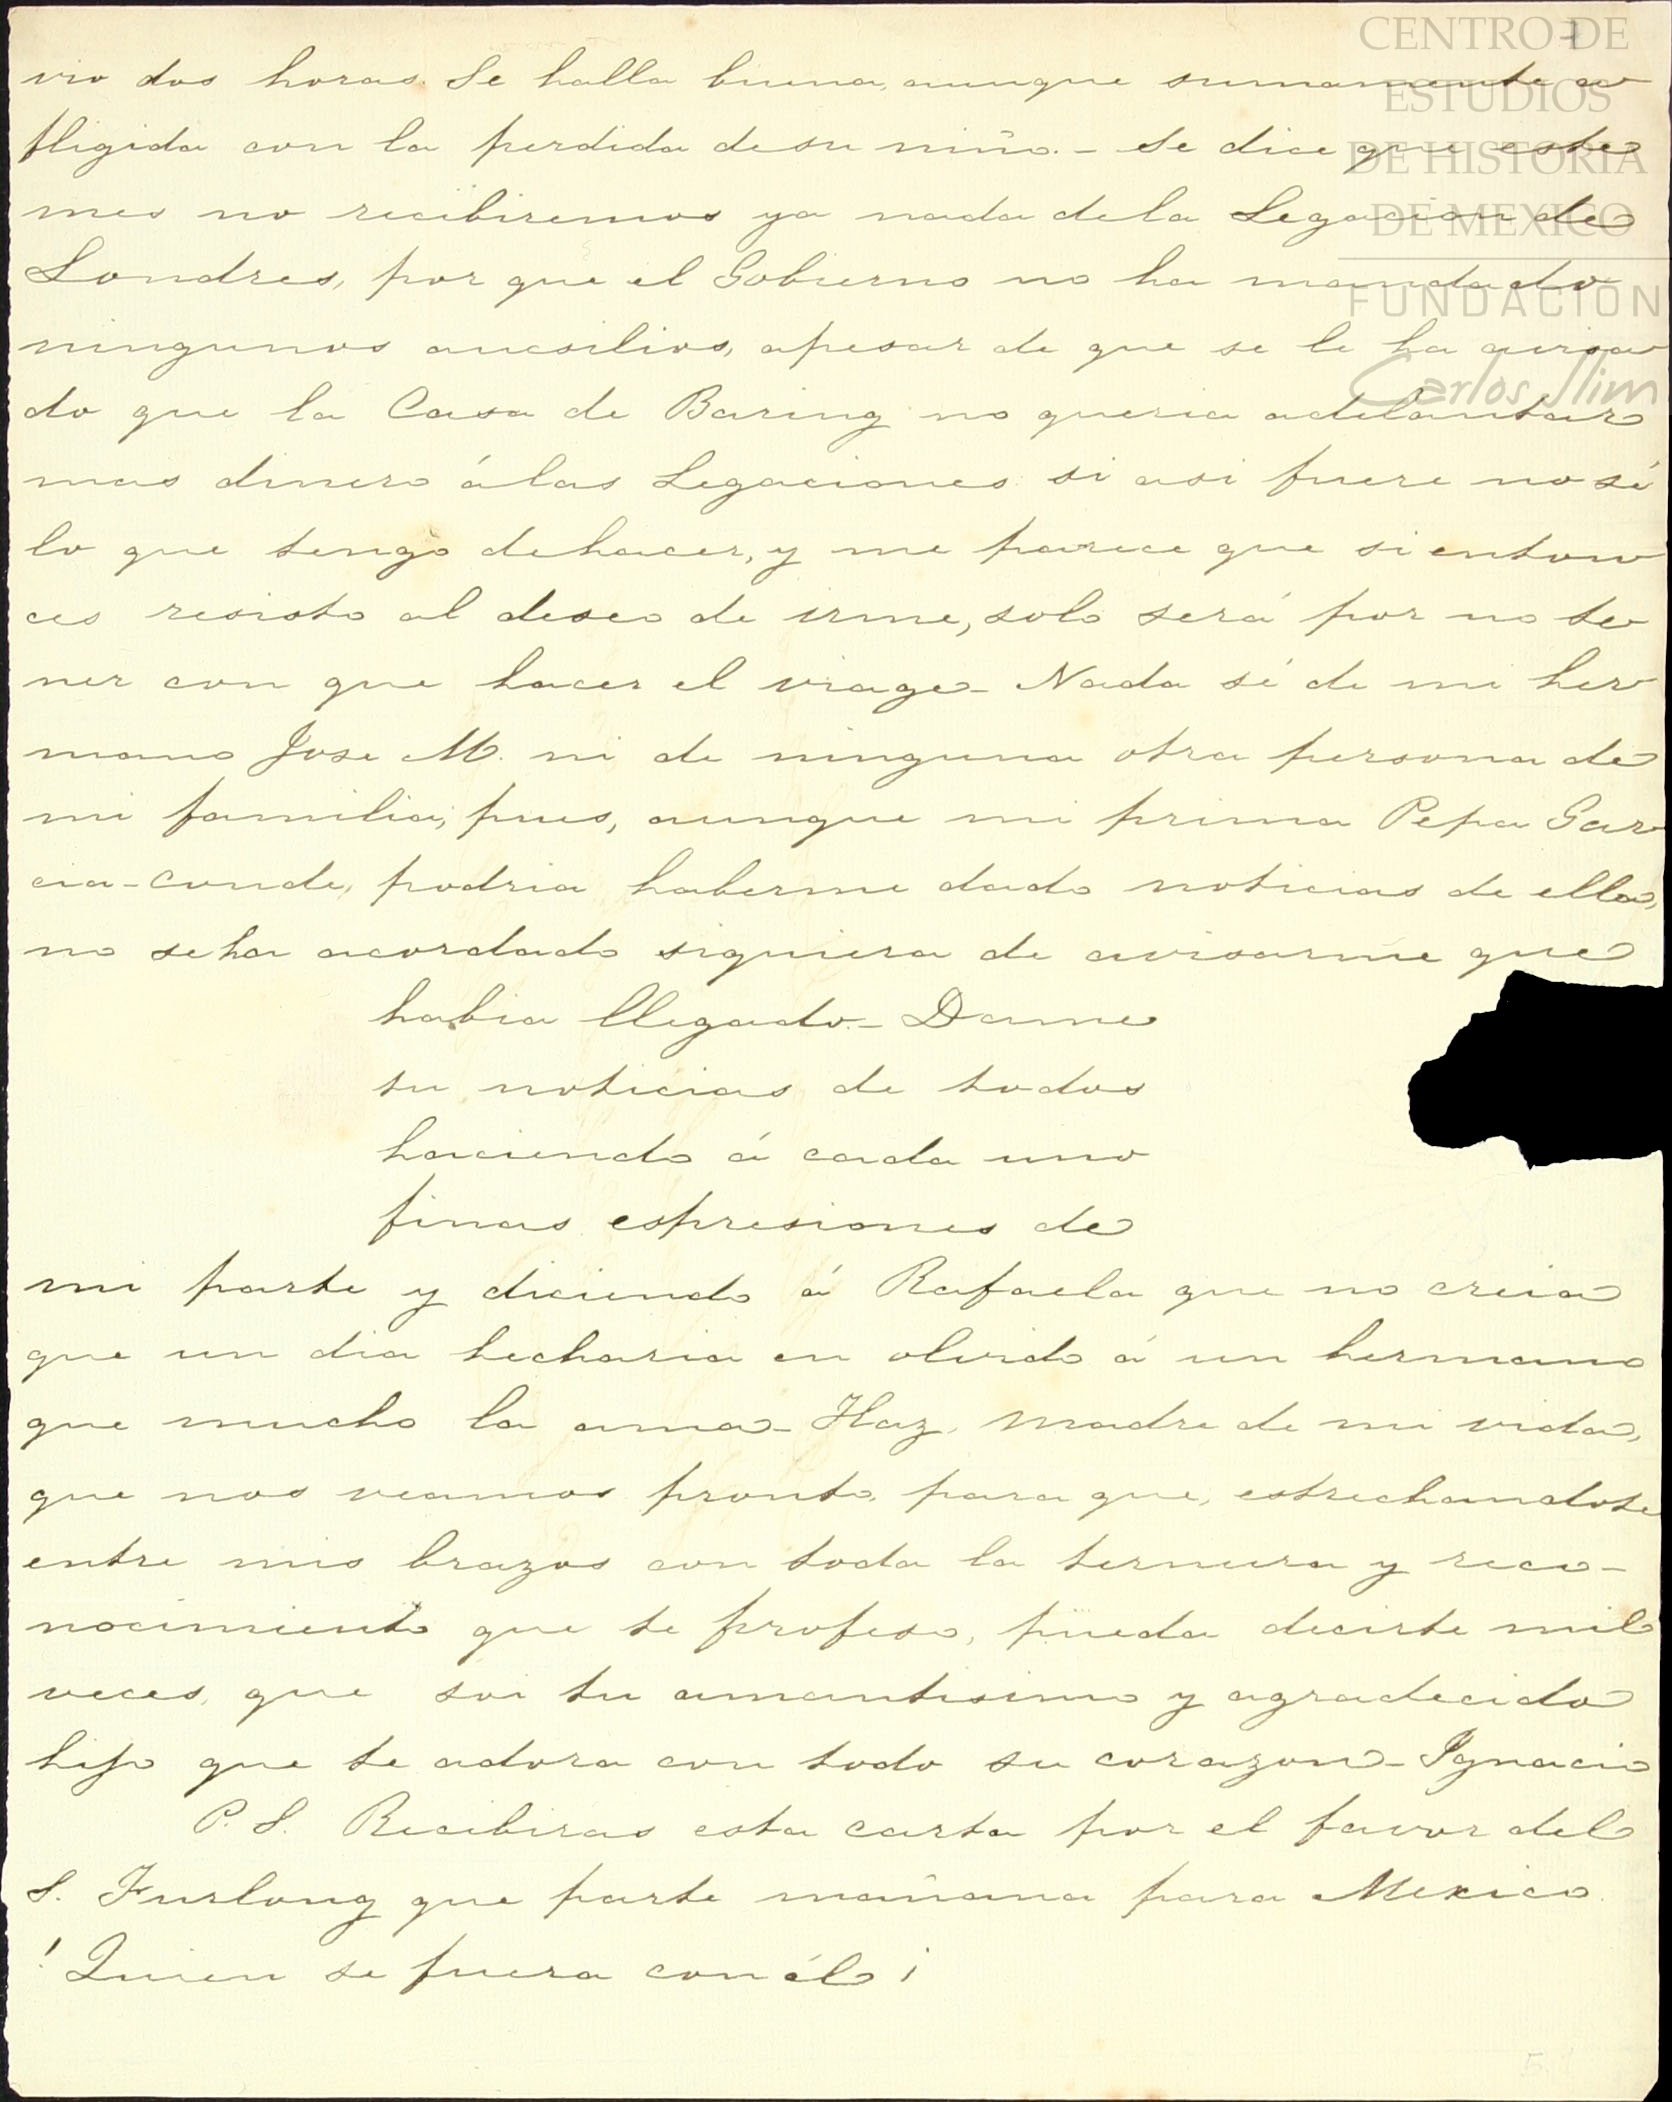 CENTRO DE
ESTUDIOS
DE HISTORIA
DE MEXICO
FUNDACIÓN
Carlos Slim
vio dos horas. Se halla buena, aunque sumamente a-
fligida con la perdida de su niño.- Se dice que este
mes no recibiremos ya nada de la Legacion de
Londres, por que el Gobierno no ha mandado
ningunos aucsilios, apesar de que se le ha avisa-
do que la Casa de Baring no queria adelantar
mas dinero á las Legaciones si asi fuere no sé
lo que tengo de hacer, y me parece que si enton-
ces resisto al deseo de irme, solo será por no te-
ner con que hacer el viage- Nada sé de mi her-
mano Jose M. ni de ninguna otra persona de
mi familia; pues, aunque mi prima Pepa Gar-
cia-conde, podria haberme dado noticias de ella,
no se ha acordado siquiera de avisarme que
habia llegado.- Dame
tu noticias de todos
haciendo á cada uno
finas espresiones de
mi parte y diciendo á Rafaela que no creia
que un dia hecharia en olvido á un hermano
que mucho la ama- Haz, madre de mi vida,
que nos veamos pronto, para que, estrechandote
entre mis brazos con toda la ternura y reco-
nocimiento que te profeso, pueda decirte mil
veces, que soi tu amantisimo y agradecido
hijo que te adora con todo su corazon- Ignacio
P. S. Recibiras esta carta por el favor del
S. Furlong que parte mañana para Mexico.
! Quien se fuera con él ¡
5.